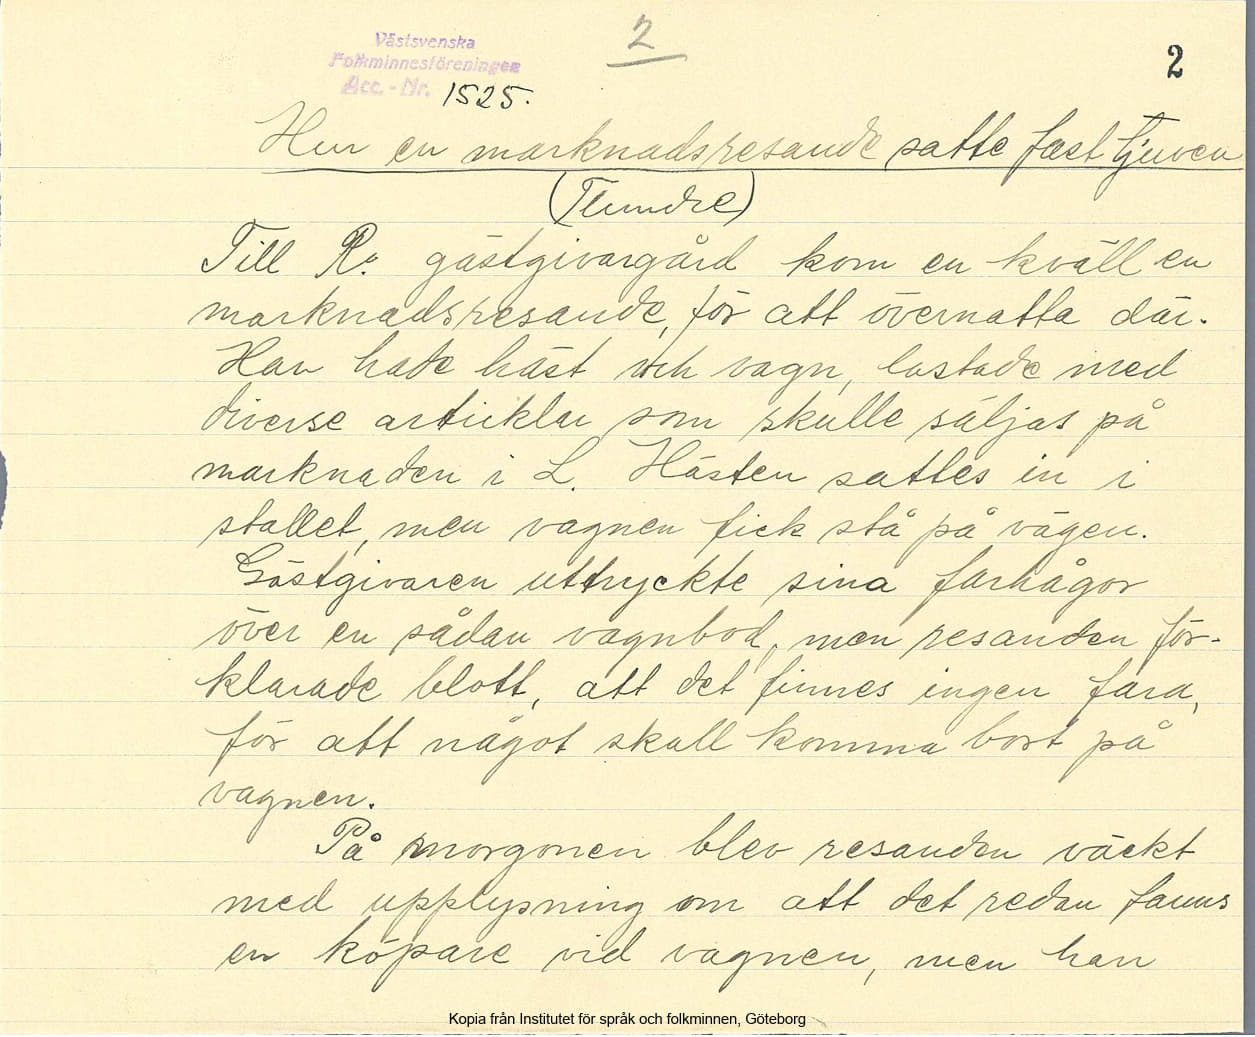 2
Västsvenska
Folkminnesföreningen
Acc.-Nr. 1525.
2
Hur en marknadsresande satte fast tjuven
(Flundre)
Till R. gästgivargård kom en kväll en
marknadsresande, för att övernatta där.
Han hade häst och vagn, lastade med
diverse articklar som skulle säljas på
marknaden i L. Hästen sattes in i
stallet, men vagnen fick stå på vägen.
Gästgivaren uttryckte sina farhågor
över en sådan vagnbod, men resanden för-
klarade blott, att det finnes ingen fara,
för att något skall komma bort på
vagnen.
På morgonen blev resanden väckt
med upplysning om att det redan fanns
en köpare vid vagnen, men han
Kopia från Institutet för språk och folkminnen, Göteborg